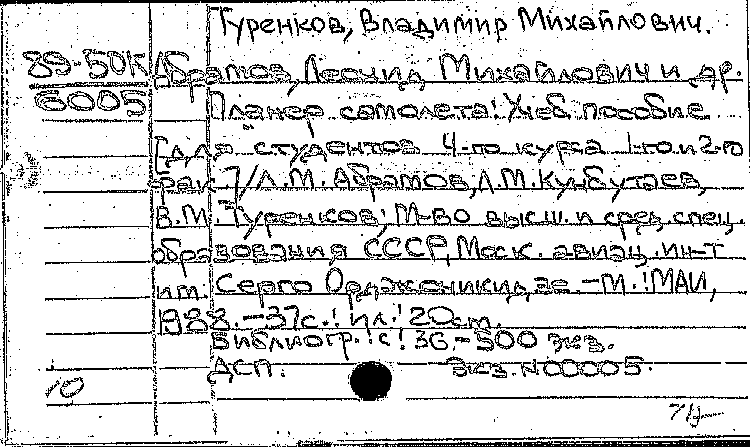 Туренков, Владимир Михайлович.
89-50К Абрамов, Леонид Михайлович и др.
6005 Планер самолета: Учеб. пособие
[для студентов 4-го курса 1-го и 2-го
фак.]/Л.М. Абрамов, А.М. Кумбутаев,
В.М. Туренков; М-во высш. и сред. спец.
образования СССР, Моск. авиац. ин-т
им. Серго Орджоникидзе.-М.: МАИ,
1988.-37с.: ил.; 20см.
Библиогр.: с. 36.-500 экз.
ДСП. Экз. N 00005.
10